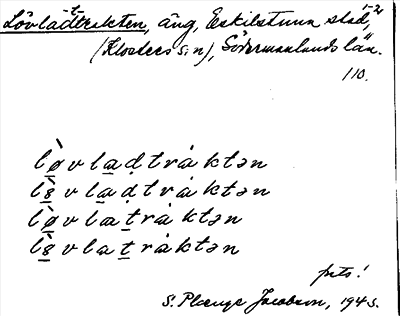 Lövladtrakten, äng, Eskilstuna stad,
(Klosters s:n), Södermanlands län.
110.
lø̀vladtráktən
lö̀vladtráktən
lø̀vlatráktən
lö̀vlatráktən
prts!
S. Plænge Jacobson, 1945.